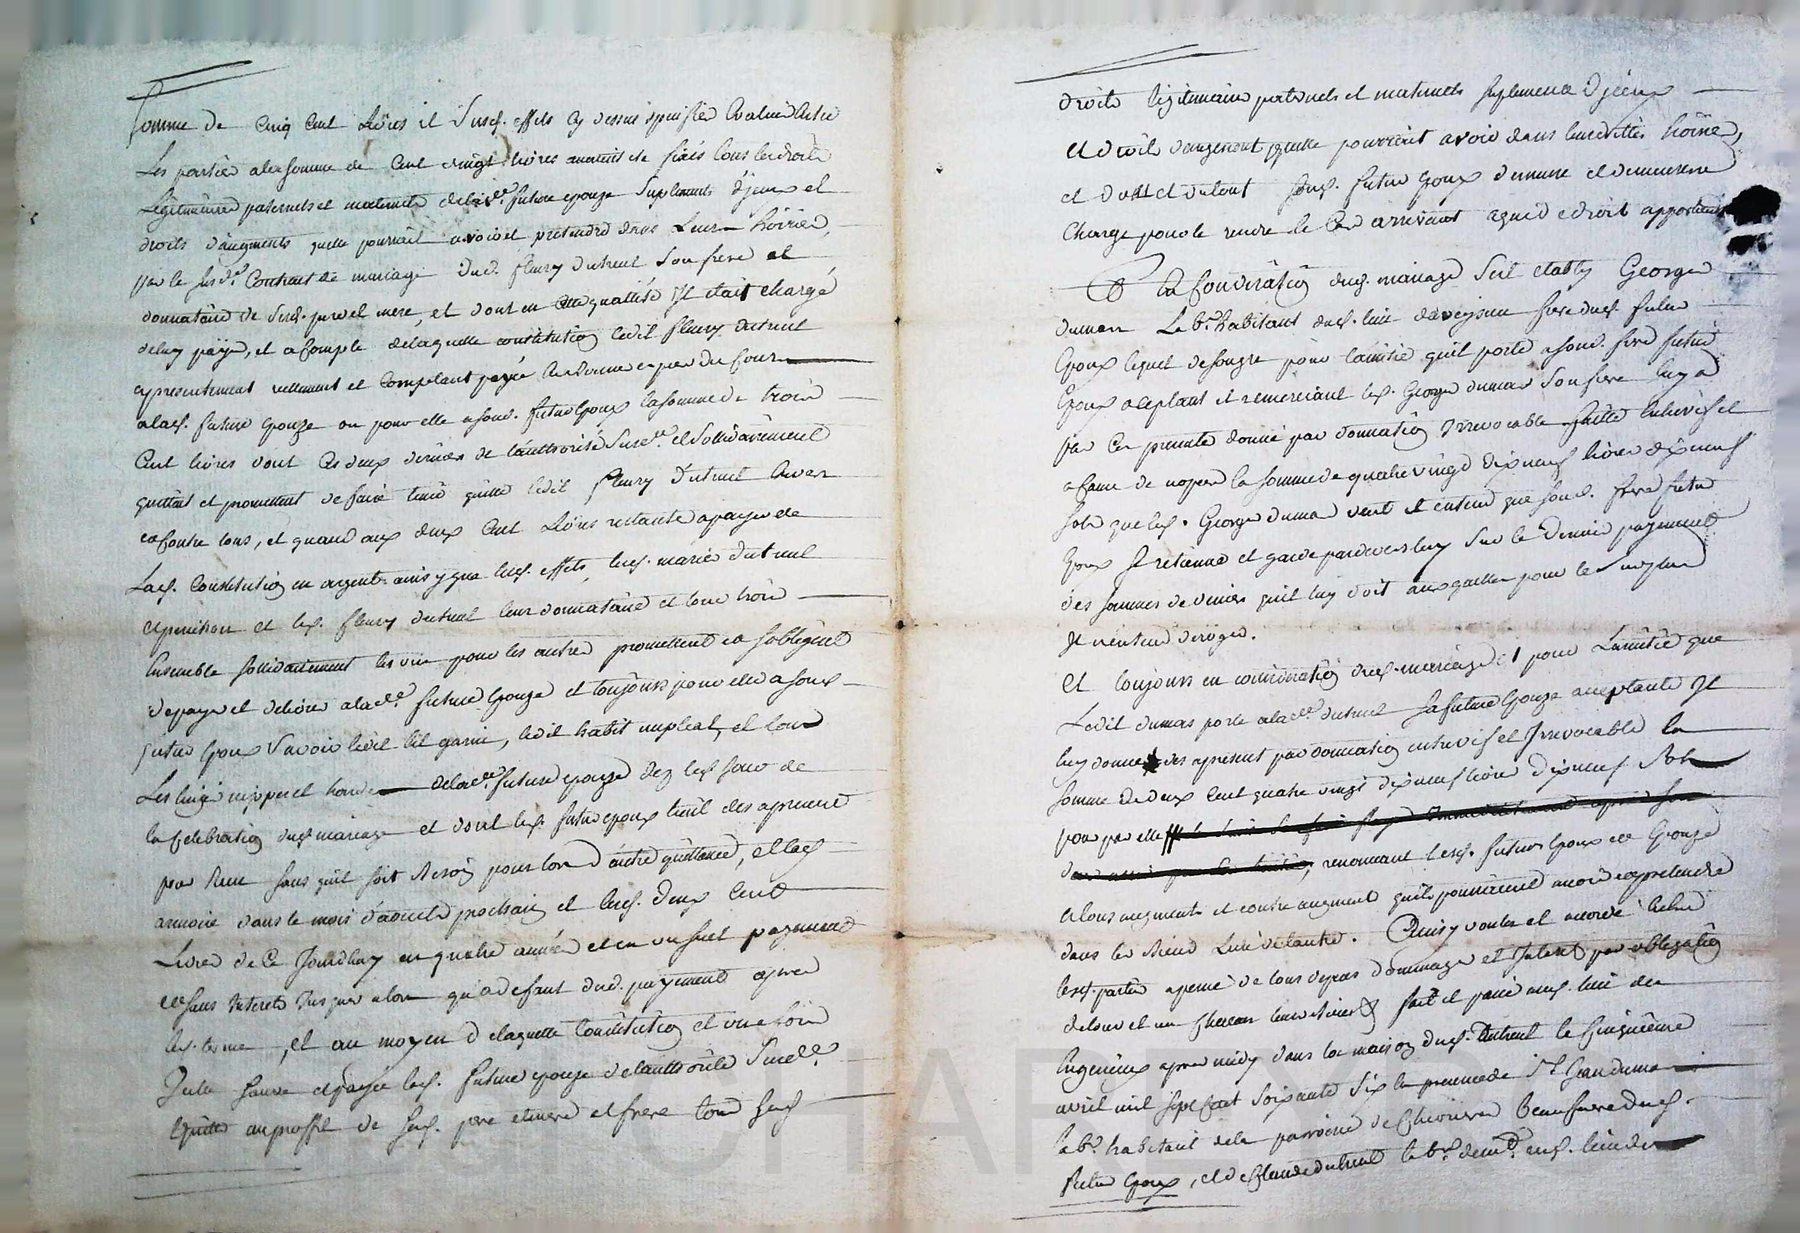 somme de cinq cent Livres et Susd. effets cy dessus speciffiés Evalués entre
Les parties a la somme de cent vingt livres
Légitimaires paternels et maternels de lad.e future epouze Suplement d'yceux et
droits d'augments quelle pourrait avoir et pretendre dans Leurs hoiries,
par le susd.t Contract de mariage dud. fleury dutreul Son frere et
donnataire de Sesd. pere et mere, et dont en cette quallité Il était chargé
de luy payer, et a Compte de laquelle constitution ledit fleury dutreul
a presentement reellement et Comptant payé
a lad. future Epouze ou pour elle a sond. futur Epoux la somme de trois
Cent livres dont ces deux derniers de l'authorité Susd.te et Sollidairement
quittent et promettent de faire tenir quitte ledit fleury Dutreul Envers
et Contre tous, et quand aux deux Cent Livres restants a payer de
Lad. Constitution en argent ainsy que lesd. effets, lesd. mariés dutreul
et led. fleury dutreul leur donnataire et tous trois
Ensemble sollidairement les uns pour les autres promettent et s'obligent
de payer et delivrer a lad.e future Epouze et toujours pour elle a sond.
futur Epoux Savoir ledit lit garni, ledit habit nuptial, et tous
Les linges nippes et hardes de lad.e future epouze dez led. jour de
la Celebration dud. mariage et dont led. futur epoux tient des apresent
pour Reçu sans qu'il soit besoin pour lors d'autre quittance, et lad.
armoire dans le mois d'aoust prochain et lesd. deux Cent
Livres de Ce Jourdhuy en quatre années et en un seul payement
et sans Interets Jusques alors qu'a defaut dud. payement apres
led. terme, et au moyen de laquelle Constitution et une fois
Icelle faitte et payée lad. future epouze de l'authorité Susd.e
quitte au proffit de Sesd. pere et mere et frere tous sesd.
droits légitimaires paternels et maternels suplement d'yceux
et droits d'augment quelle pourrait avoir dans leursdittes hoiries,
et du tout sond. futur Epoux demeure et demeurera
Chargé pour le rendre le Cas arrivant a qui de droit appartiendra
En Consideration dud. mariage S'est etably George
dumas Lab.r habitant dud. lieu de veyssieu frere dud. futur
Epoux lequel de son gré pour l'amitié qu'il porte a sond. frere futur
Epoux acceptant et remerciant led. George dumas Son frere luy a
par Ces presentes donné par donnation Irrevocable faitte entrevifs et
a Cause de nopces la somme de quatre vingt dix neuf livres dix neuf
sols que led. George dumas veut et entend que sond. frere futur
Epoux Il retienne et garde pardevers luy Sur le dernier payement
des sommes de deniers qu'il luy doit auxquelles pour le surplus
Il n'entend deroger.
Et toujours en consideration dud. mariage et pour L'amitié que
Ledit dumas porte a lad.e dutreul Sa future Epouze acceptante Il
luy donne des apresent par donnation entrevifs et Irrevocable la
somme de deux Cent quatre vingt dix neuf livres dix neuf Sols
pour par elle
renonceant lesd. futurs Epoux et Epouze
a tous augments et contre augment qu'ils pourraient avoir et pretendre
dans les biens L'un de l'autre. Ainsy voulu et accordé entre
lesd. parties a peine de tous depens dommages et Interets par obligation
de tous et un Chacun leurs biens fait et passé aud. lieu de
apres midy dans la maison dud. Dutreul le Cinquieme
avril mil sept cent soixante six En presence de S.r Jean dumas
Lab.r habitant de la paroisse de Beaufrere dud.
futur Epoux, et de Claude dutreul Lab.r dem.t aud. lieu de